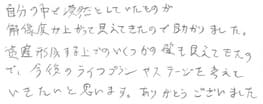 自分の中で漠然としていたものが
解像度が上がって見えてきたので助かりました。
資産形成する上でのいくつかの壁も見えてきたの
で、今後のライフプランやステージを考えて
いきたいと思います。ありがとうございました